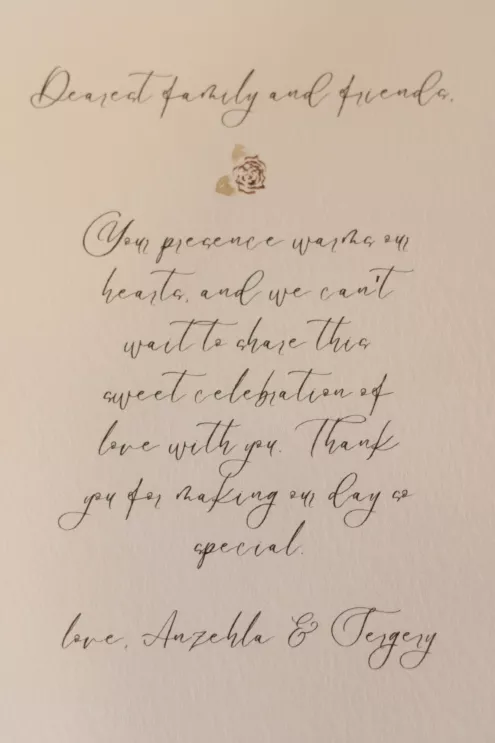 Dearest family and friends,
Your presence warms our
hearts, and we can't
wait to share this
sweet celebration of
love with you. Thank
you for making our day so
special.
love, Anzehla & Tergery